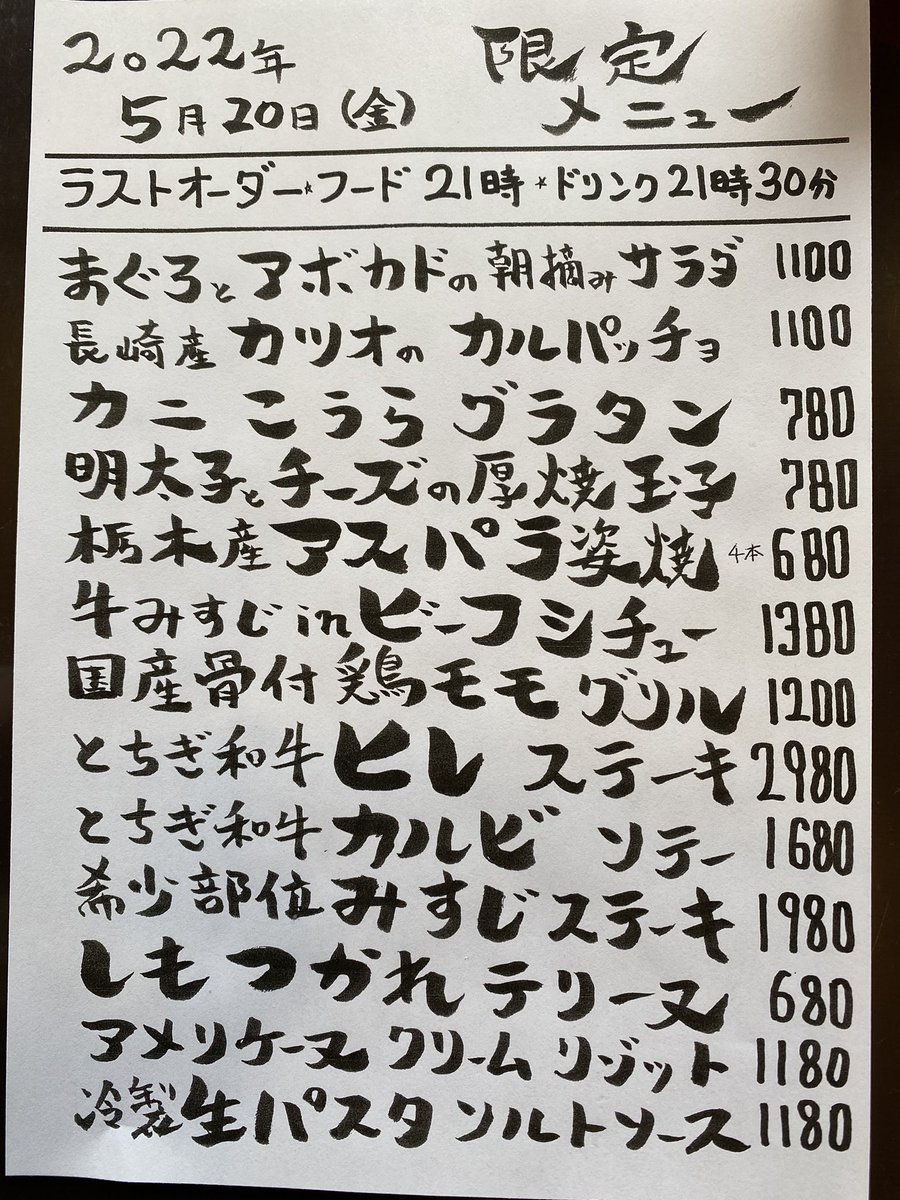 2022年
5月20日(金)
限定
メニュー
ラストオーダー★フード 21時 ★ドリンク 21時30分
まぐろとアボカドの朝摘みサラダ 1100
長崎産カツオのカルパッチョ 1100
カニこうらグラタン 780
明太子とチーズの厚焼玉子 780
栃木産アスパラ姿焼 4本 680
牛みすじinビーフシチュー 1380
国産骨付鶏モモグリル 1200
とちぎ和牛ヒレステーキ 2980
とちぎ和牛カルビソテー 1680
希少部位みすじステーキ 1980
しもつかれテリーヌ 680
アメリケーヌクリームリゾット 1180
冷製生パスタソルトソース 1180